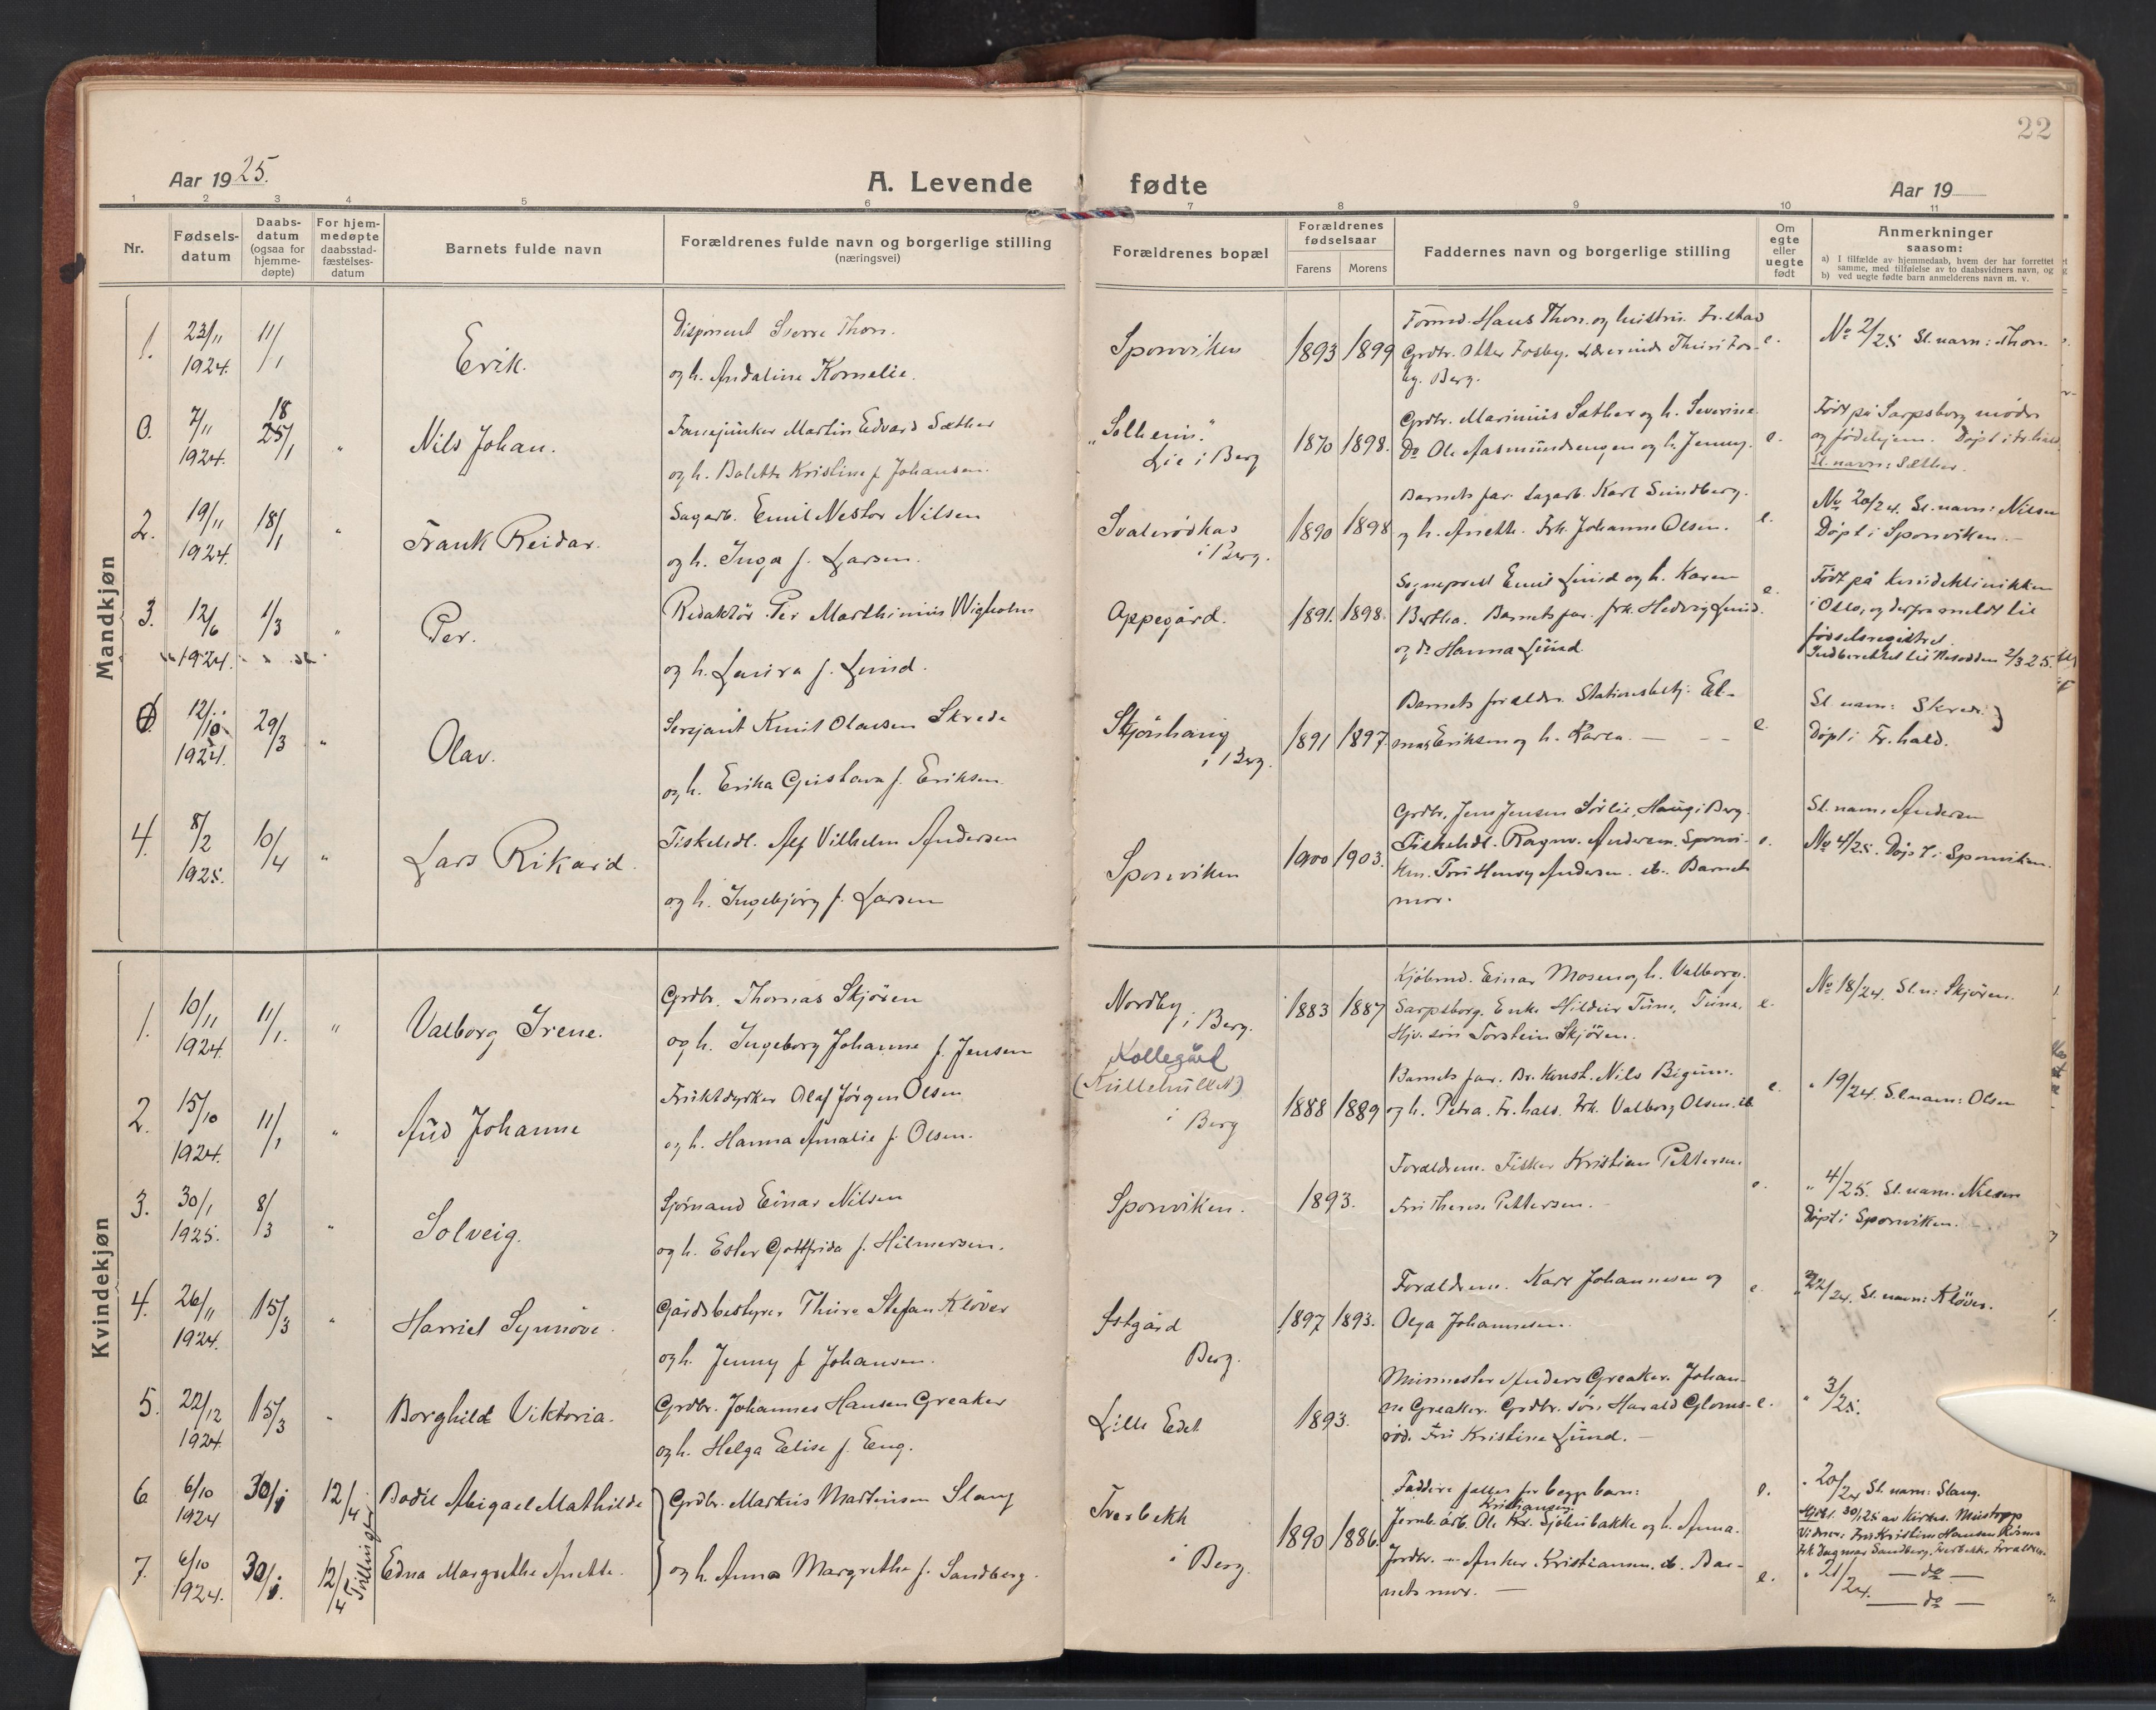 22
Aar 1925.
A. Levende fødte
Aar 19
1 2 3 4 5 6 7 8 9 10 11
Nr.
Fødsels-
datum
Daabs-
datum
(ogsaa for
hjemme-
døpte)
For hjem-
medøpte
daabsstad-
fæstelses-
datum
Barnets fulde navn
Forældrenes fulde navn og borgerlige stilling
(næringsvei)
Forældrenes bopæl
Forældrenes
fødselsaar
Farens
Morens
Faddernes navn og borgerlige stilling
Om
egte
eller
uegte
født
Anmerkninger
saasom:
a) I tilfælde av hjemmedaab, hvem der har forrettet
samme, med tilføielse av to daabsvidners navn, og
b) ved uegte fødte barn anmelderens navn m. v.
Mandkjøn
1. 23/11 1924. 11/1
Erik.
Disponent Sverre Thon.
og h. Andaline Kornelie.
Sponviken
1893 1899
Formd. Hans Thon og hustru. Fr.stad
Grdbr. Otter Fosby. Lærerinde Thuri Fos-
by. Berg.
e.
No 2/25 Sl. navn: Thon.
0. 7/11 1924. 18 25/1 "
Nils Johan.
Fanejunker Martin Edvard Sæther
og h. Bolette Kristine f. Johansen.
"Solheim."
Lie i Berg
1870 1898.
Grdbr. Marinius Sæther og h. Severine
Do Ole Aasmundsengen og h. Jenny.
e.
Født på Sarpsborg mødre
og fødehjem. Døpt i Fr.hald
Sl. navn: Sæther.
2. 19/11 1924. 18/1 "
Frank Reidar.
Sagarb. Emil Nestor Nilsen
og h. Inga f. Larsen.
Svalerødkas
i Berg.
1890 1898
Barnets far. Sagarb. Karl Sundberg.
og h. Anette. Frk. Johanne Olsen.
e.
No 20/24. Sl. navn: Nilsen
Døpt i Sponviken.
3. 12/6 1924. 1/3 "
Per.
Redaktør Per Marthinius Wigholm
og h. Laura f. Lund.
Oppegård.
1891. 1898.
Sogneprest Emil Lund og h. Karen
Bertha. Barnets far. frk. Hedvig Lund.
og do Hanna Lund
e.
Født på kvindeklinikken
i Oslo, og derfra meldt til
fødselsregistret.
Indberettet til Nesodden 2/3 25.
0. 12/10 1924. 29/3 "
Olav.
Serjant Knut Olavsen Skrede
og h. Erika Gustava f. Eriksen
Skjønhaug
i Berg.
1891 1897
Barnets foreldre. Stationsbetj. El-
mar Eriksen og h. Karen.
e
Sl. navn: Skrede.
Døpt i Fr. hald.
4. 8/2 1925. 10/4 "
Lars Rikard.
Fiskehdl. Alf Vilhelm Andersen
og h. Ingebjørg f. Larsen
Sponviken
1900 1903.
Grdbr. Jens Jensen Sørlie, Haug i Berg.
Fiskehdl. Ragnv. Andersen. Sponvi-
ken. Fru Henny Andersen. ib. Barnets
mor.
e.
Sl. navn: Andersen
No 4/25. Døpt i Sponviken.
Kvindekjøn
1. 10/11 1924. 11/1. "
Valborg Irene.
Grdbr. Thomas Skjøren
og h. Ingeborg Johanne f. Jensen
Nordby
i Berg.
1883 1887
Kjøbmd. Einar Mosen og h. Valborg.
Sarpsborg. Enke Hildur Tune, Tune.
Hjv. søn Torstein Skjøren.
e.
No 18/24. Sl. n: Skjøren.
2. 15/10 1924. 11/1 "
Aud Johanne
Fruktdyrker Olaf Jørgen Olsen
og h. Hanna Amalie f. Olsen.
Kollegård
(Kullehullet)
i Berg
1888 1889
Barnets far. Br.konst. Nils Bigum.
og h. Petra. Fr. hald. Frk. Valborg Olsen. ib.
e.
" 19/24. Sl. navn: Olsen
3. 30/1 1925. 8/3 "
Solveig.
Sjømand Einar Nilsen
og h. Ester Gottfrida f. Hilmersen.
Sponviken.
1893.
Forældrene. Fisker Kristian Pettersen.
Fru Therese Pettersen.
e.
" 4/25. Sl. navn. Nilsen
Døpt i Sponviken.
4. 26/11 1924. 15/3 "
Harriet Synnøve.
Gårdsbestyrer Thure Stefan Kløver
og h. Jenny f. Johansen.
Østgård
Berg.
1897 1893.
Forældrene. Karl Johannesen og
Olga Johannesen.
e
" 22/24. Sl. navn: Kløver.
5. 22/12 1924. 15/3 "
Borghild Viktoria.
Grdbr. Johannes Hansen Greaker
og h. Helga Elise f. Eng.
Lille Edet
1893.
Murmester Anders Greaker. Johan-
ne Greaker. Grdbr. søn. Harald Gloms-
rød. Fru Kristine Lund. —
e.
" 3/25.
6 6/10 1924 30/1 12/4
Bodil Abigael Mathilde
Grdbr. Markus Martinsen Slang
Tverbekk
1890 1886.
Faddere felles for begge barn:
Kristiansen
Jernb. arb. Ole Kr. Sjølubakke og h. Anna.
e.
" 20/24 Sl. navn: Slang.
Hjdbt. 30/1 25 av kirkes. Mustopp
Vidner: Fru Kristine Hansen
Frk. Dagmar Sandberg. Tverbekk. Forældrene.
Trillinger
7. 6/10 1924. 30/1. 12/4
Edna Margrethe Anette.
og h. Anna Margrethe f. Sandberg.
i Berg.
Jordbr. — Anker Kristiansen. ib. Bar-
nets mor. —
e.
" 21/24. — do —
— do —